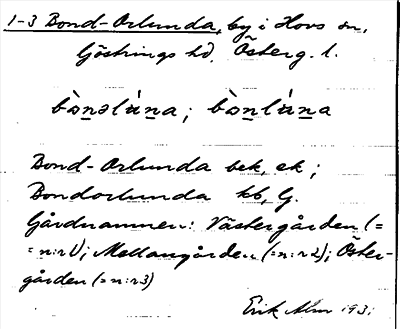 1-3 Bond-Orlunda, by i Hovs sn,
Göstrings hd, Österg. l.
bò̱nəlú̱na; bò̱nlú̱na
Bond-Orlunda bek, ek;
Bondorlunda kb, G.
Gårdnamnen: Västergården (=
= n:r 1); Mellangården (= n:r 2); Öster-
gården (= n:r 3)
Erik Alm 1931